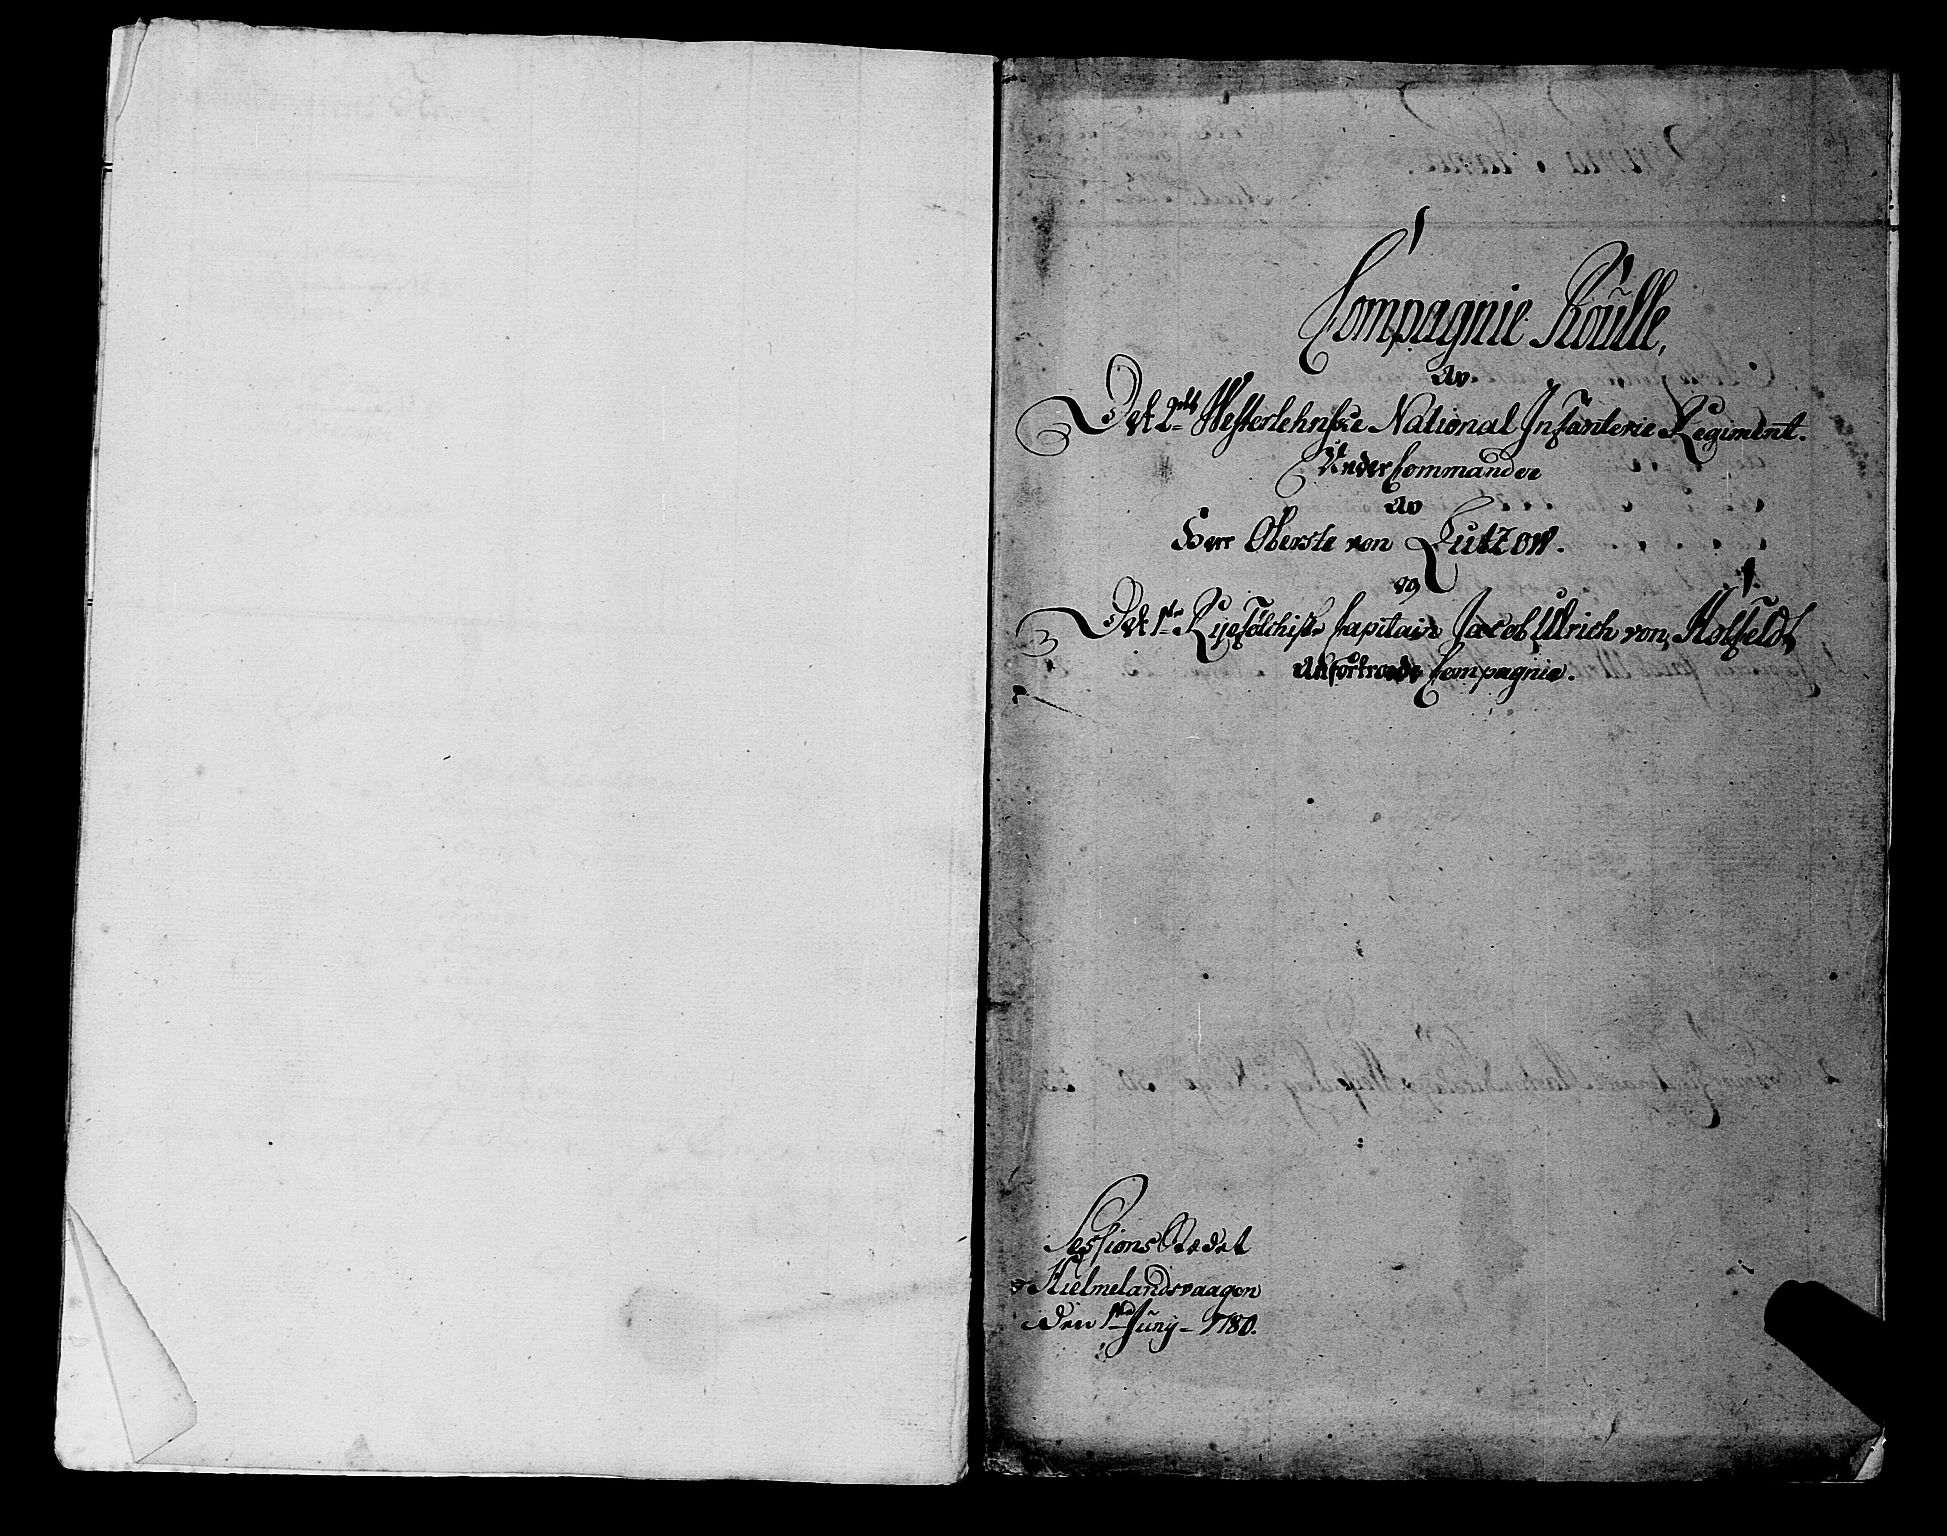 Compagnie Roulle,
av
Det 2det Westerlehnske National Infanterie Regiment.
Under Commando
av
Herr Oberste von Lutzow.
og
Det 1te Ryefölchiske Capitain Jacob Ulrich von Motzfeldt
Anfortroede Compagnie.
Sessions Stedet
Hielmelandsvaagen
Den 1te Juny 1780.